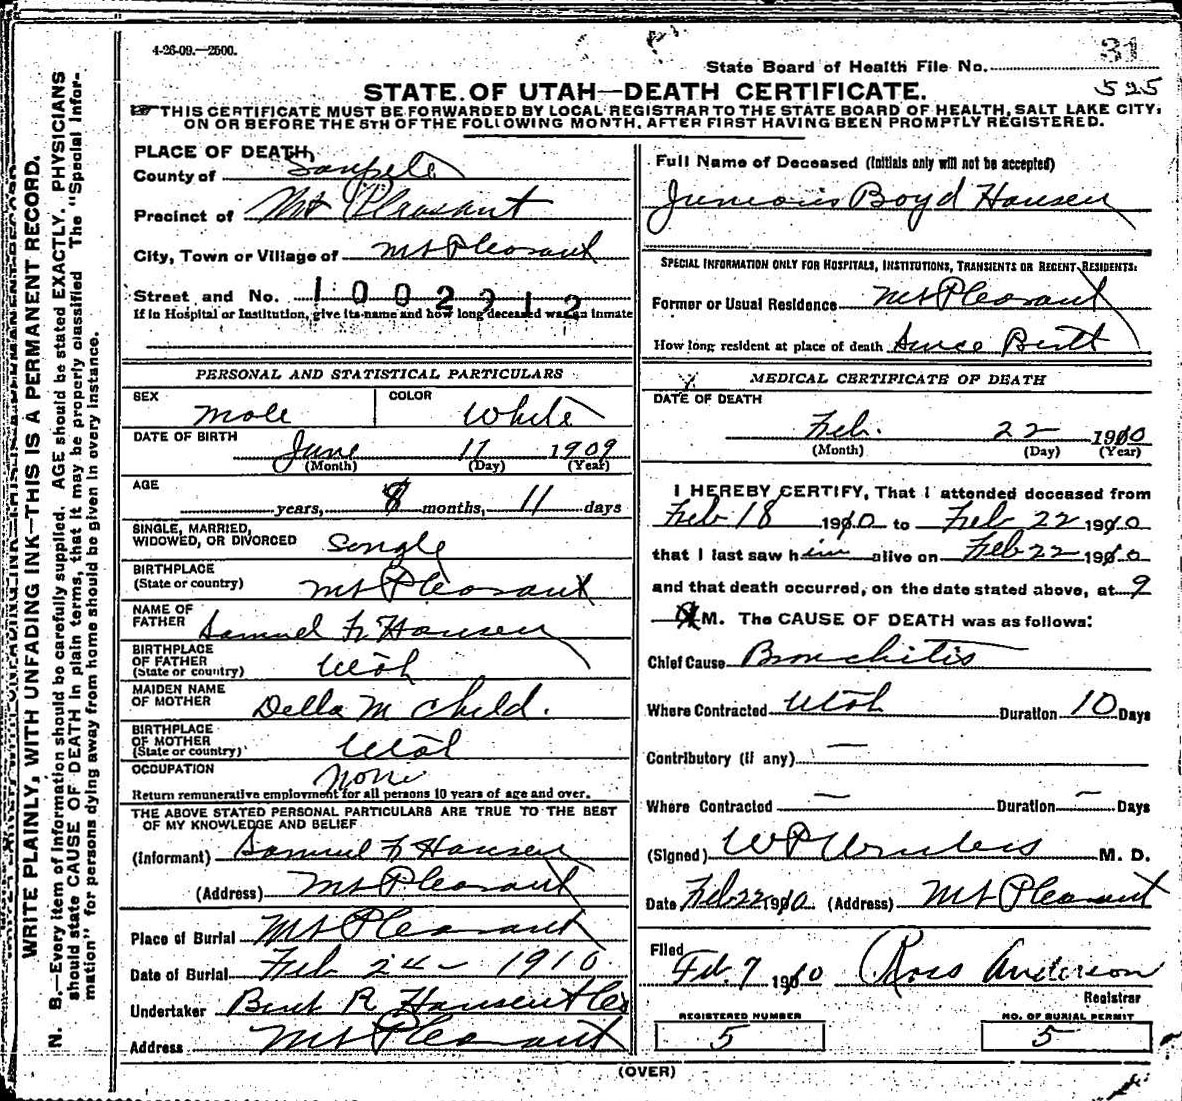 4-26-09.—2500.
31
State Board of Health File No.
525
STATE OF UTAH—DEATH CERTIFICATE.
THIS CERTIFICATE MUST BE FORWARDED BY LOCAL REGISTRAR TO THE STATE BOARD OF HEALTH, SALT LAKE CITY,
ON OR BEFORE THE 5TH OF THE FOLLOWING MONTH, AFTER FIRST HAVING BEEN PROMPTLY REGISTERED.
WRITE PLAINLY, WITH UNFADING INK—THIS IS A PERMANENT RECORD.
N. B.—Every item of information should be carefully supplied. AGE should be stated EXACTLY. PHYSICIANS
should state CAUSE OF DEATH in plain terms, that it may be properly classified. The "Special Infor-
mation" for persons dying away from home should be given in every instance.
PLACE OF DEATH,
County of Sanpete
Precinct of Mt Pleasant
City, Town or Village of Mt Pleasant
Street and No. 1002912
If in Hospital or Institution, give its name and how long deceased was an inmate
PERSONAL AND STATISTICAL PARTICULARS
SEX Male COLOR White
DATE OF BIRTH June 11 1909
(Month) (Day) (Year)
AGE
years, 8 months, 11 days
SINGLE, MARRIED,
WIDOWED, OR DIVORCED Single
BIRTHPLACE
(State or country) Mt Pleasant
NAME OF
FATHER Samuel F. Hansen
BIRTHPLACE
OF FATHER
(State or country) Utah
MAIDEN NAME
OF MOTHER Della M Child.
BIRTHPLACE
OF MOTHER
(State or country) Utah
OCCUPATION None
Return remunerative employment for all persons 10 years of age and over.
THE ABOVE STATED PERSONAL PARTICULARS ARE TRUE TO THE BEST
OF MY KNOWLEDGE AND BELIEF
(Informant) Samuel F Hansen
(Address) Mt Pleasant
Place of Burial Mt Pleasant
Date of Burial Feb 24 - 1910.
Undertaker Bent R Hansen &
Address Mt Pleasant
Full Name of Deceased (Initials only will not be accepted)
Junious Boyd Hansen
SPECIAL INFORMATION ONLY FOR HOSPITALS, INSTITUTIONS, TRANSIENTS OR RECENT RESIDENTS:
Former or Usual Residence Mt Pleasant
How long resident at place of death Since Birth
MEDICAL CERTIFICATE OF DEATH
DATE OF DEATH
Feb. 22 1910
(Month) (Day) (Year)
I HEREBY CERTIFY, That I attended deceased from
Feb 18 1910 to Feb 22 1910
that I last saw him alive on Feb 22 1910
and that death occurred, on the date stated above, at 9
M. The CAUSE OF DEATH was as follows:
Chief Cause Bronchitis
Where Contracted Utah Duration 10 Days
Contributory (if any) —
Where Contracted — Duration — Days
(Signed) M. D.
Date Feb 22 1910 (Address) Mt Pleasant
Filed
Feb. 7 1910 Ross Anderson
Registrar
REGISTERED NUMBER
5
NO. OF BURIAL PERMIT
5
(OVER)